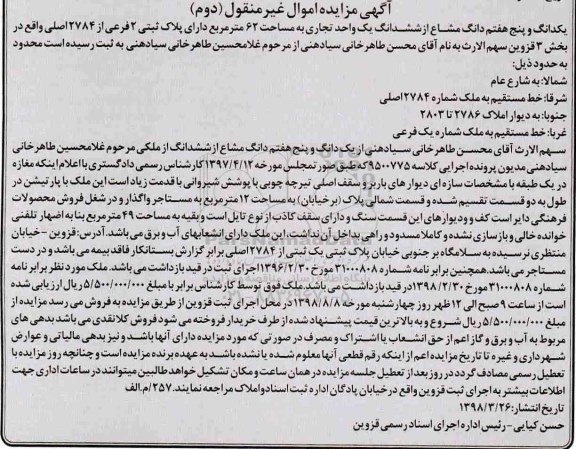 آگهی مزایده اموال غیر منقول (دوم)
یکدانگ و پنج هفتم دانگ مشاع از ششدانگ یک واحد تجاری به مساحت ۶۲ مترمربع دارای پلاک ثبتی ۲ فرعی از ۲۷۸۴ اصلی واقع در
بخش ۳ قزوین سهم الارث به نام آقای محسن طاهرخانی سیادهنی از مرحوم غلامحسین طاهرخانی سیادهنی به ثبت رسیده است محدود
به حدود ذیل:
شمالا: به شارع عام
شرقا: خط مستقیم به ملک شماره ۲۷۸۴ اصلی
جنوبا: به دیوار املاک ۲۷۸۶ تا ۲۸۰۳
غربا: خط مستقیم به ملک شماره یک فرعی
سهم الارث آقای محسن طاهرخانی سیادهنی از یک دانگ و پنج هفتم دانگ مشاع از ششدانگ از ملکی مرحوم غلامحسین طاهرخانی
سیادهنی مدیون پرونده اجرایی کلاسه ۹۵۰۰۷۷۵ که طبق صورتمجلس مورخه ۱۳۹۷/۴/۱۲ کارشناس رسمی دادگستری با اعلام اینکه مغازه
در یک طبقه با مشخصات سازه ای دیوار های باربر و سقف اصلی تیرچه چوبی با پوشش شیروانی با قدمت زیاد است این ملک با پارتیشن در
طول به دو قسمت تقسیم شده و قسمت شمالی پلاک (بر خیابان) به مساحت ۱۲ مترمربع به مستاجر واگذار و در شغل فروش محصولات
فرهنگی دایر است کف و دیوارهای این قسمت سنگ و دارای سقف کاذب از نوع تایل است و بقیه به مساحت ۴۹ مترمربع بنا به اظهار تلفنی
خوانده خالی و بازسازی نشده و کاملا مسدود و راهی بداخل آن نداشت، این ملک دارای انشعابهای آب و برق می باشد. آدرس: قزوین - خیابان
منتظری نرسیده به سلامگاه بر جنوبی خیابان پلاک ثبتی یک ثبتی از ۲۷۸۴ اصلی برابر گزارش بستانکار فاقد بیمه می باشد و در دست
مستاجر می باشد. همچنین برابر نامه شماره ۳۱۰۰۰۸۰۸ مورخ ۱۳۹۶/۲/۳۰ اجرای ثبت در قید بازداشت می باشد. ملک مورد نظر برابر نامه
شماره ۳۱۰۰۰۸۰۸ مورخ ۱۳۹۸/۲/۳۰ در قید بازداشت می باشد. ملک فوق توسط کارشناس برابر با مبلغ ۵/۵۰۰/۰۰۰/۰۰۰ ریال ارزیابی شده
است از ساعت ۹ صبح الی ۱۲ ظهر روز چهارشنبه مورخه ۱۳۹۸/۸/۸ در محل اجرای ثبت قزوین از طریق مزایده به فروش می رسد مزایده از
مبلغ ۵/۵۰۰/۰۰۰/۰۰۰ ریال شروع و به بالاترین قیمت پیشنهاد شده از طرف خریدار فروخته می شود فروش کلا نقدی می باشد بدهی های
مربوط به آب و برق و گاز اعم از حق انشعاب یا اشتراک و مصرف در صورتی که مورد مزایده دارای آنها باشد و نیز بدهی مالیاتی و عوارض
شهرداری و غیره تا تاریخ مزایده اعم از اینکه رقم قطعی آنها معلوم شده یا نشده باشد به عهده برنده مزایده است و چنانچه روز مزایده با
تعطیل رسمی مصادف گردد در روز بعد از تعطیل جلسه مزایده در همان ساعت و مکان تشکیل خواهد طالبین میتوانند در ساعات اداری جهت
اطلاعات بیشتر به اجرای ثبت قزوین واقع در خیابان پادگان اداره ثبت اسناد و املاک مراجعه نمایند. ۲۵۷/م.الف
تاریخ انتشار: ۱۳۹۸/۳/۲۶
حسن کیایی - رئیس اداره اجرای اسناد رسمی قزوین